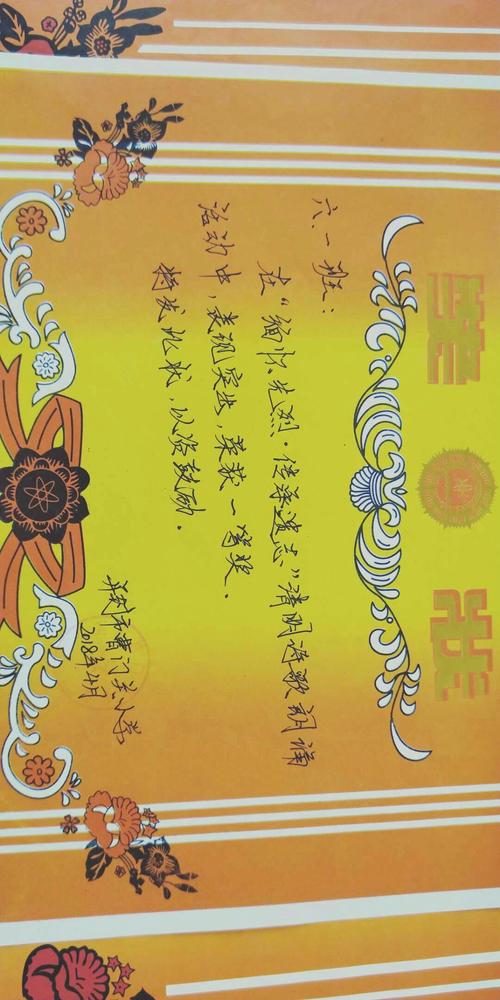 奖状
六.一班:
在"缅怀先烈·传承遗志"清明诗歌朗诵
活动中,表现突出,荣获一等奖.
特发此状,以资鼓励.
开封市曹门关小学
2018年4月